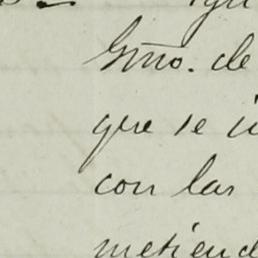 Gmo. de
que se i
con las
metiend